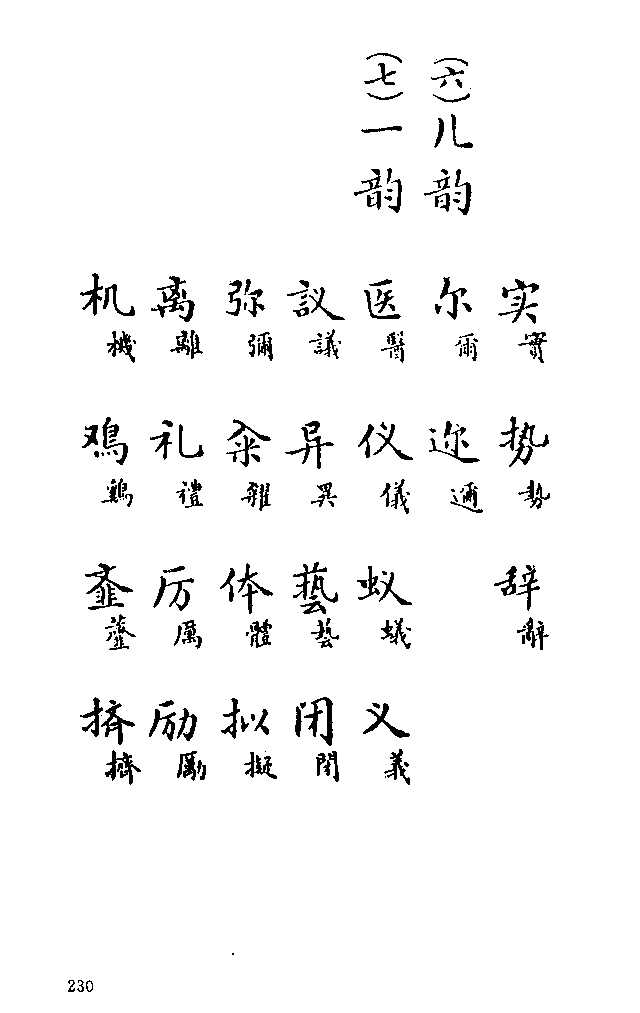 实 實 势 勢 辞 辭
(六)儿韵 尔 爾 迩 邇
(七)一韵 医 醫 仪 儀 蚁 蟻 义 義
议 議 异 異 藝 藝 闭 閉
弥 彌 籴 糴 体 體 拟 擬
离 離 礼 禮 厉 厲 励 勵
机 機 鸡 鷄 齑 虀 挤 擠
230